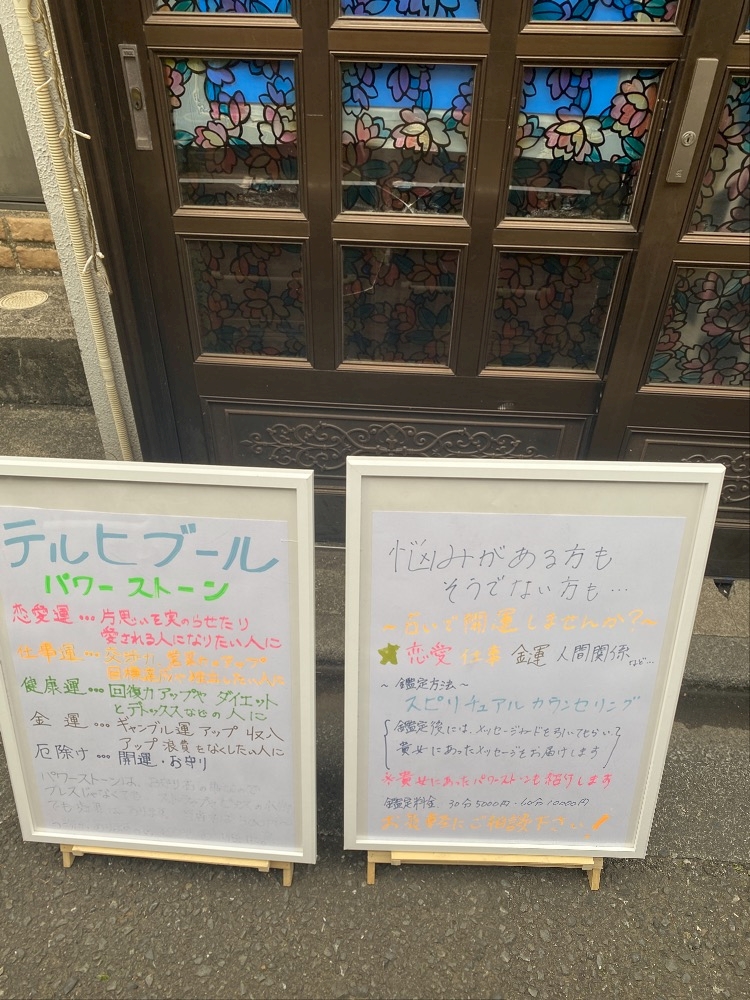 テルヒブール
パワーストーン
恋愛運…片思いを実のらせたり
愛される人になりたい人に
仕事運…交渉力 営業力アップや
目標達成
健康運…回復力アップや ダイエット
とデトックスなどの人に
金運…ギャンブル運アップ 収入
アップ 浪費をなくしたい人に
厄除け…開運・お守り
パワーストーンは、
ブレスじゃなく
悩みがある方も
そうでない方も…
～占いで開運しませんか？～
★恋愛 仕事 金運 人間関係 など…
～鑑定方法～
スピリチュアルカウンセリング
鑑定後には、メッセージカードを引いてもらい
貴女にあったメッセージをお届けします
※貴女にあったパワーストーンも紹介します
鑑定料金 30分5000円～60分10000円
お気軽にご相談下さい！